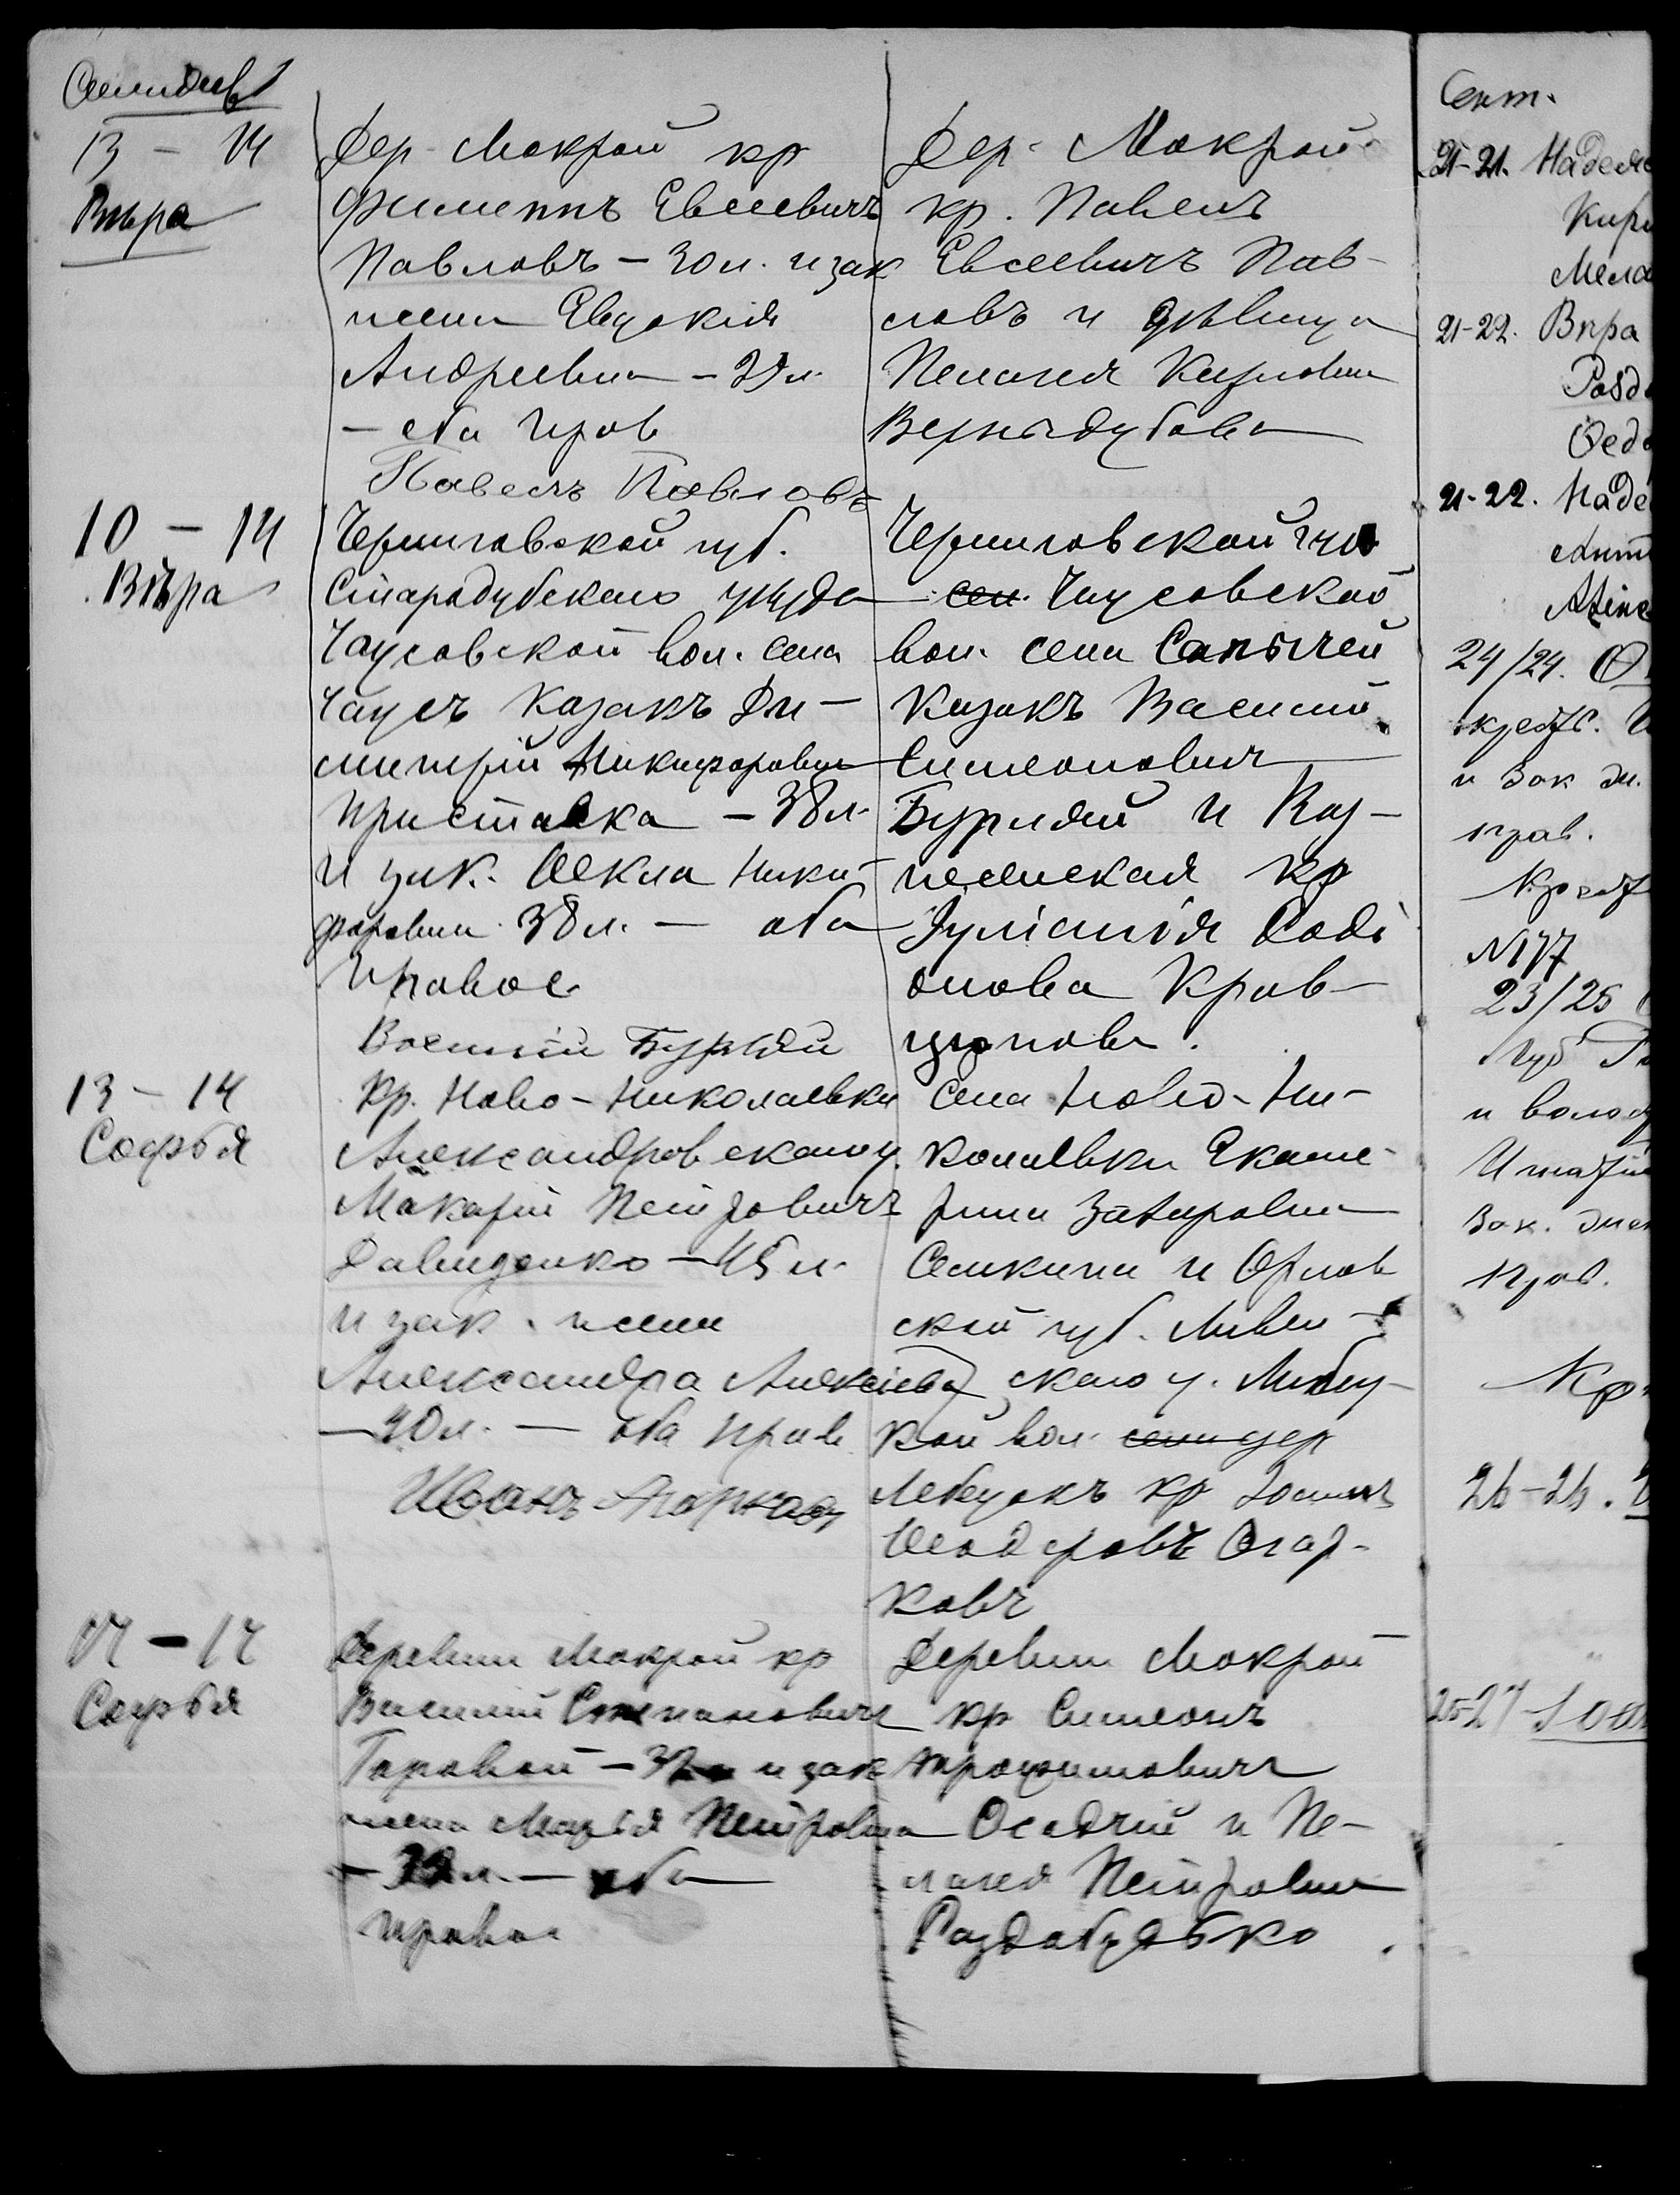 Сентябрь
13 - 14
Вѣра
Дер. Мокрой кр
Филиппъ Евсеевичъ
Павловъ - 30 л. и зак
жена Евдокія
Андреевна - 29 л.
- оба прав
Павелъ Павловъ
Дер. Мокрой
кр. Павелъ
Евсеевичъ Пав-
ловъ и дѣвица
Пелагея Карповна
Вернидубова
10 - 14
Вѣра
Черниговской губ.
Стародубскаго уѣзда
Чаусовской вол. села
Чаусъ казакъ Ди-
митрій Никифоровичъ
Приставка - 38 л.
и зак. Ѳекла Ники-
форовна 38 л. - оба
правос
Василій Бурляй
Черниговской губ
Чаусовской
вол. села Сапычей
казакъ Василій
Симеоновичъ
Бурляй и
кр
Іуліанія Роді
онова Крав-
цова.
13 - 14
Софья
Кр. Ново-Николаевки
Александровскаго у.
Макарій Петровичъ
Давиденко - 45 л.
и зак. жена
Александра Алексіева
- 40 л. - оба прав
Иванъ
Села Ново-Ни-
колаевки Екате-
рина Захаровна
Семкина и Орлов
ской губ. Ливен-
скаго у.
кой вол. дер
кр Іоаннъ
Ѳеодоровъ Огар-
ковъ
14 - 14
Софья
Деревни Мокрой кр
Василій Степановичъ
и зак
жена Марья Петровна
- 32 л. - оба
правос
Деревни Мокрой
кр Симеонъ
Трофимовичъ
Осадчій и Пе-
лагея Петровна
Раздобудько
Сент.
21-21.
21-22. Вѣра
21-22.
24/24.
и зак
прав.
N177
23/25
губ
и
зак.
прав.
Кр
26-26.
25-27